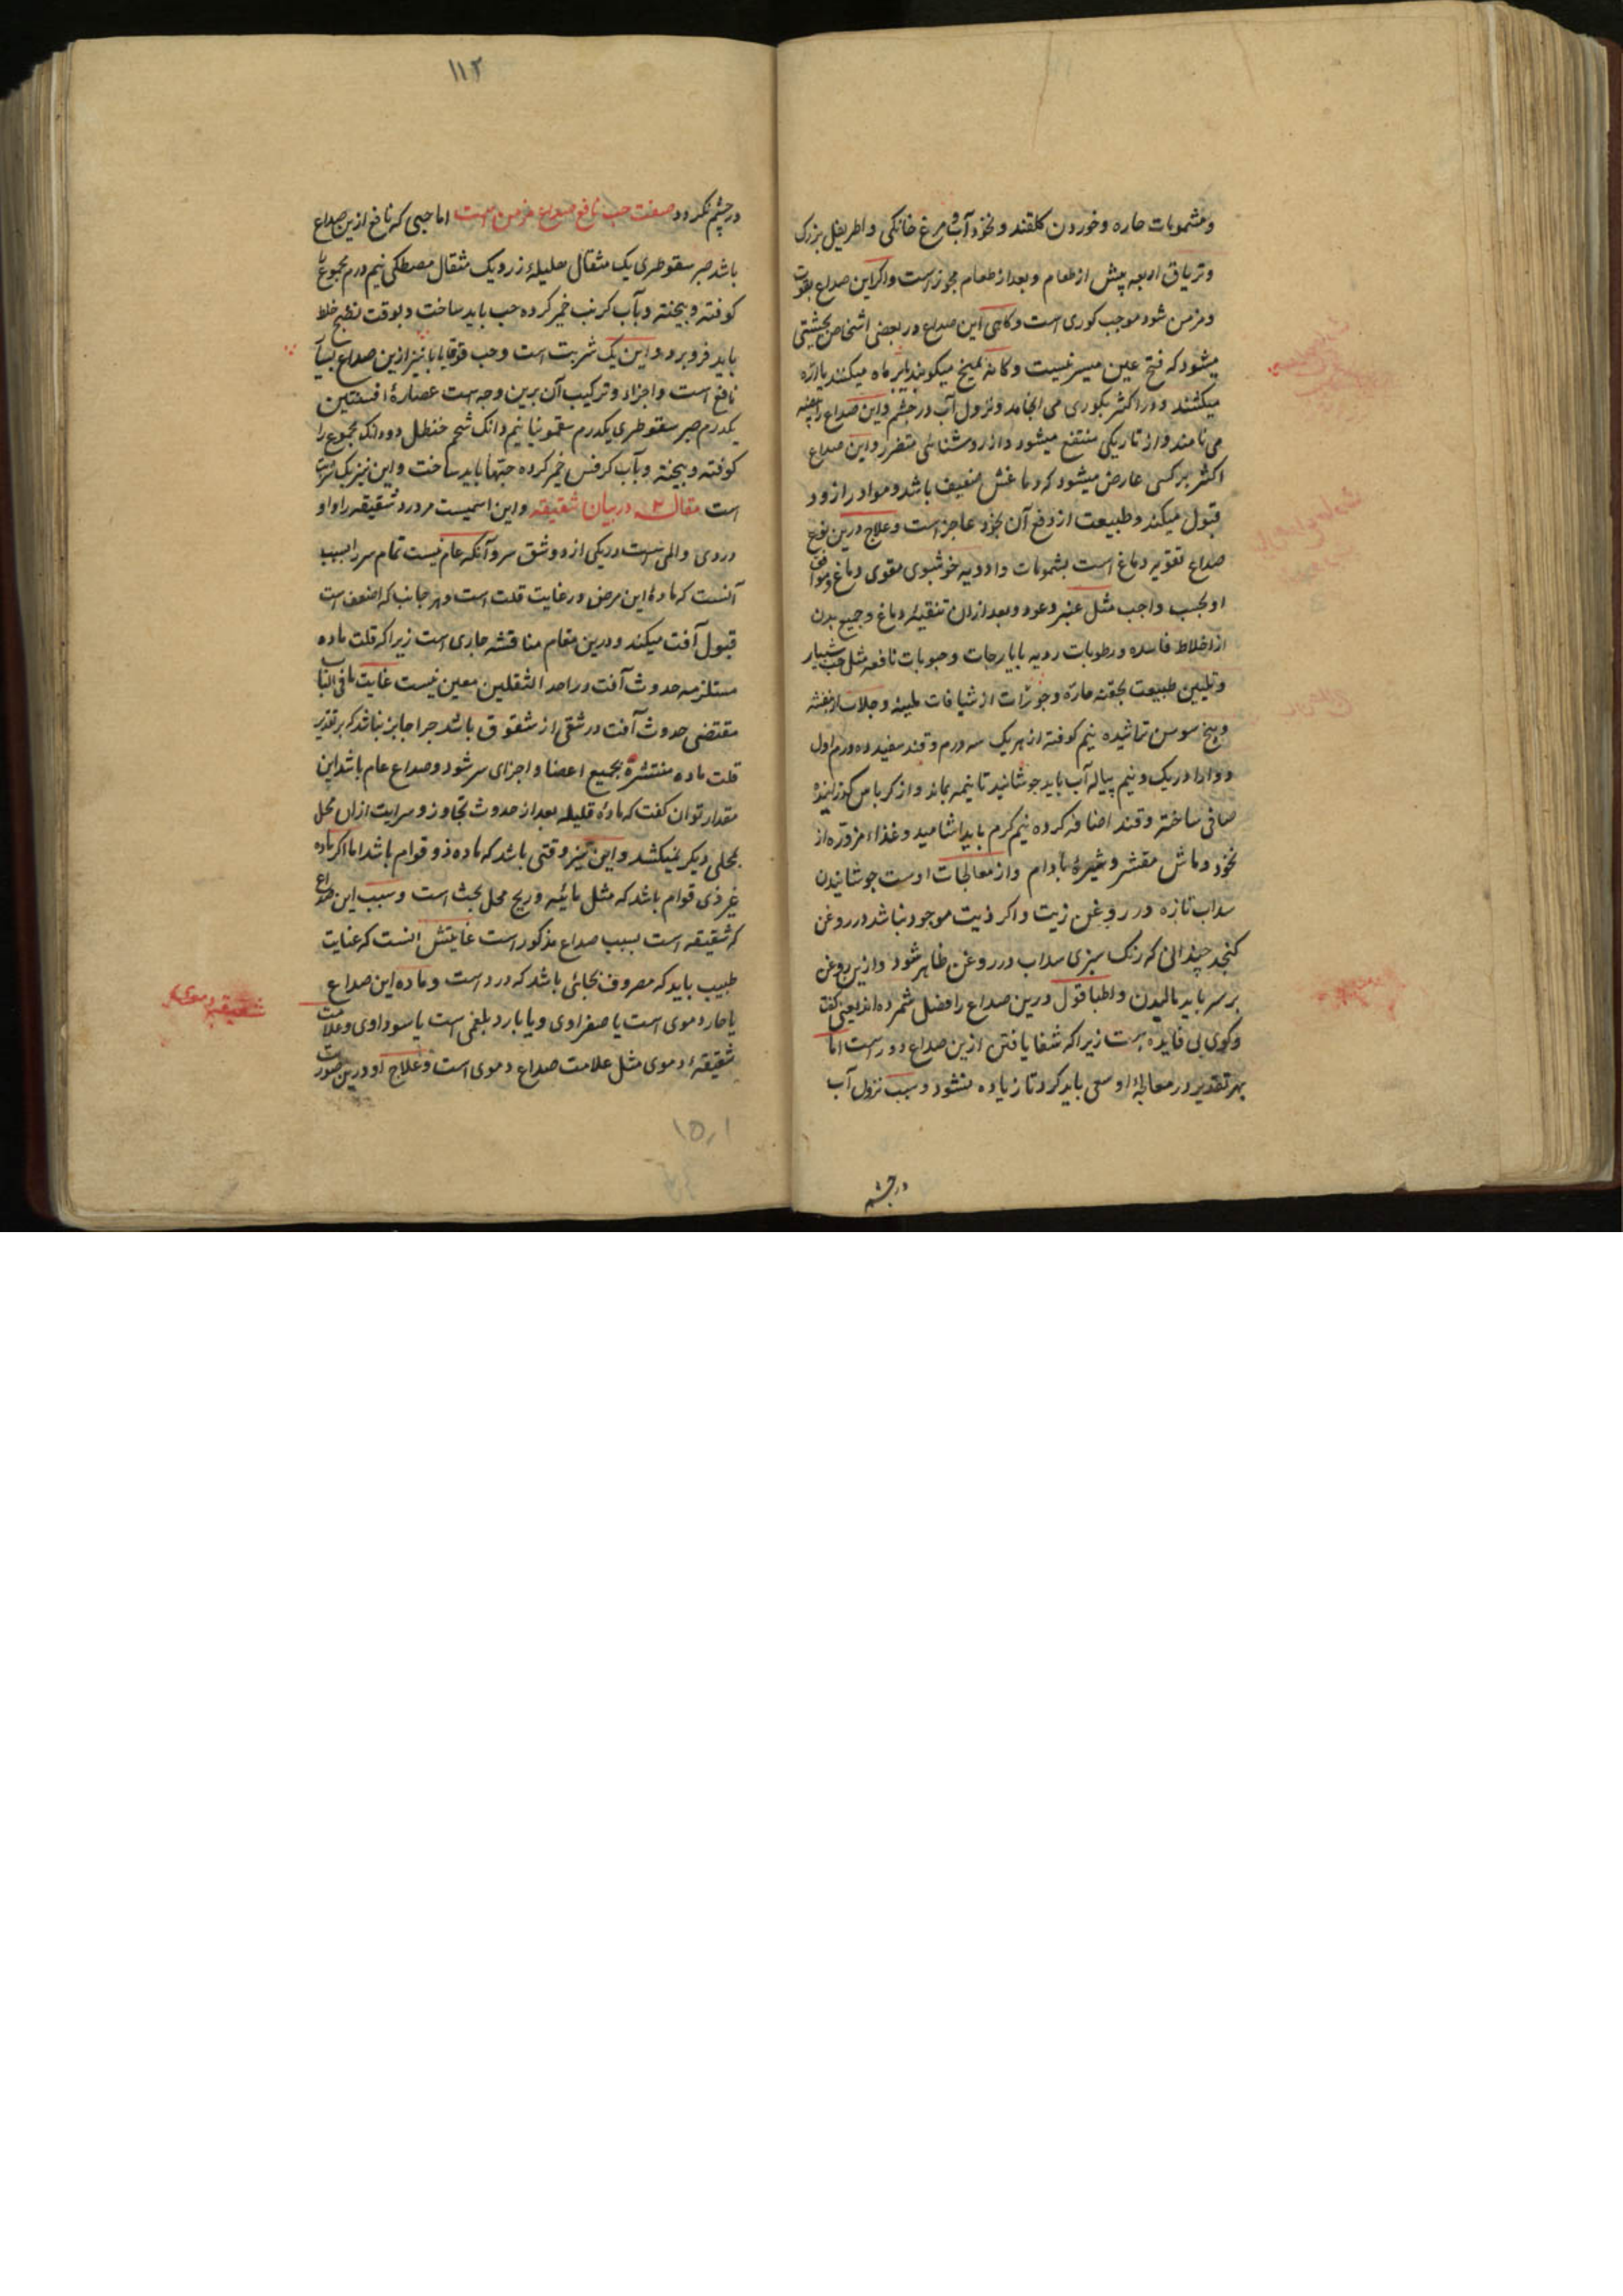 ومشمومات حاره وخوردن کلقند ونخود آب و مرغ خانکی واطریفل بزرک
وتریاق اربعه پیش از طعام وبعد از طعام مجوز است واکر این صداع بقوت
ومزمن شود موجب کوری است وکاهی این صداع در بعضی اشخاص بحیثیتی
میشود که فتح عین میسر نیست وکانه بمیخ میکوبند یا بر ماه میکنند یا اره
میکشند ودر اکثر بکوری می انجامد ونزول آب در چشم واین صداع را بیضه
می نامند واز تاریکی منتفع میشود واز روشنائی متضرر واین صداع
اکثر بر کسی عارض میشود که دماغش ضعیف باشد ومواد را زود
قبول میکند وطبیعت از دفع آن بخود عاجز است وعلاج درین نوع
صداع تقویه دماغ است بشمومات وادویه خوشبوی مقوی دماغ وموافق
او بحسب واجب مثل عنبر وعود وبعد ازان تنقیه دماغ وجمیع بدن
از اخلاط فاسده ورطوبات ردیه بایارجات وحبوبات نافعه مثل حب شبیار
وتلیین طبیعت بحقنه حاره وجوزات از شیافات ملینه وجلاب از بنفشه
وبیخ سوسن تراشیده نیم کوفته از هر یک سه درم وقند سفید ده درم اول
دوا را در یک ونیم پیاله آب باید جوشانید تا نیمه بماند واز کرباس کذرانیده
صافی ساخته وقند اضافه کرده نیم کرم باید اشامید وغذاء مزوره از
نخود وماش مقشر وشیرهٔ بادام واز معالجات اوست جوشانیدن
سداب تازه در روغن زیت واکر زیت موجود نباشد در روغن
کنجد چندانی که رنک سبزی سداب در روغن ظاهر شود وازین روغن
بر سر باید مالیدن واطبا قول درین صداع را فضل شمرده اند یعنی کفت
وکوی بی فایده است زیرا که شفا یافتن ازین صداع دور است اما
بهر تقدیر در معالجهٔ او سعی باید کرد تا زیاده نشود وسبب نزول آب
در چشم
۱۱۲
در چشم نکردد صفت حب نافع صداع مزمن است اما حبی که نافع ازین صداع
باشد صبر سقوطری یک مثقال هلیلهٔ زرد یک مثقال مصطکی نیم درم مجموع را
کوفته وبیخته وبآب کرنب خمیر کرده حب باید ساخت وبوقت نضج خلط
باید فرو برد واین یک شربت است وحب قوقایا نیز ازین صداع بسیار
نافع است واجزاء وترکیب آن برین وجه است عصارهٔ افسنتین
یکدرم صبر سقوطری یکدرم سقمونیا نیم دانک شحم حنظل دو دانک مجموع را
کوفته وبیخته وبآب کرفس خمیر کرده حبها باید ساخت واین نیز یک شربت
است مقاله ۲ در بیان شقیقه واین اسمیست مر درد شقیقه را واو
دردی والمی است در یکی از دو شق سر وآنکه عام نیست تمام سر را بسبب
آنست که مادهٔ این مرض در غایت قلت است وهر جانب که اضعف است
قبول آفت میکند ودرین مقام مناقشه جاری است زیرا که قلت ماده
مستلزمه حدوث آفت در احد الثقلین معین نیست غایت ما فی الباب
مقتضی حدوث آفت در شقی از شقوق باشد چرا جایز نباشد که بر تقدیر
قلت ماده منتشره بجمیع اعضا واجزای سر شود وصداع عام باشد این
مقدار توان کفت که مادهٔ قلیله بعد از حدوث تجاوز وسرایت ازان محل
بمحلی دیکر نمیکشد واین نیز وقتی باشد که ماده ذو قوام باشد اما اکر ماده
غیر ذی قوام باشد که مثل مائیه وریح محل بحث است وسبب این صداع
که شقیقه است بسبب صداع مذکور است غایتش انست که عنایت
طبیب باید که مصروف بجائی باشد که درد است وماده این صداع
یا حار دموی است یا صفراوی ویا بارد بلغمی است یا سوداوی وعلامت
شقیقهٔ دموی مثل علامت صداع دموی است وعلاج او درین صورت
شقیقه دموی